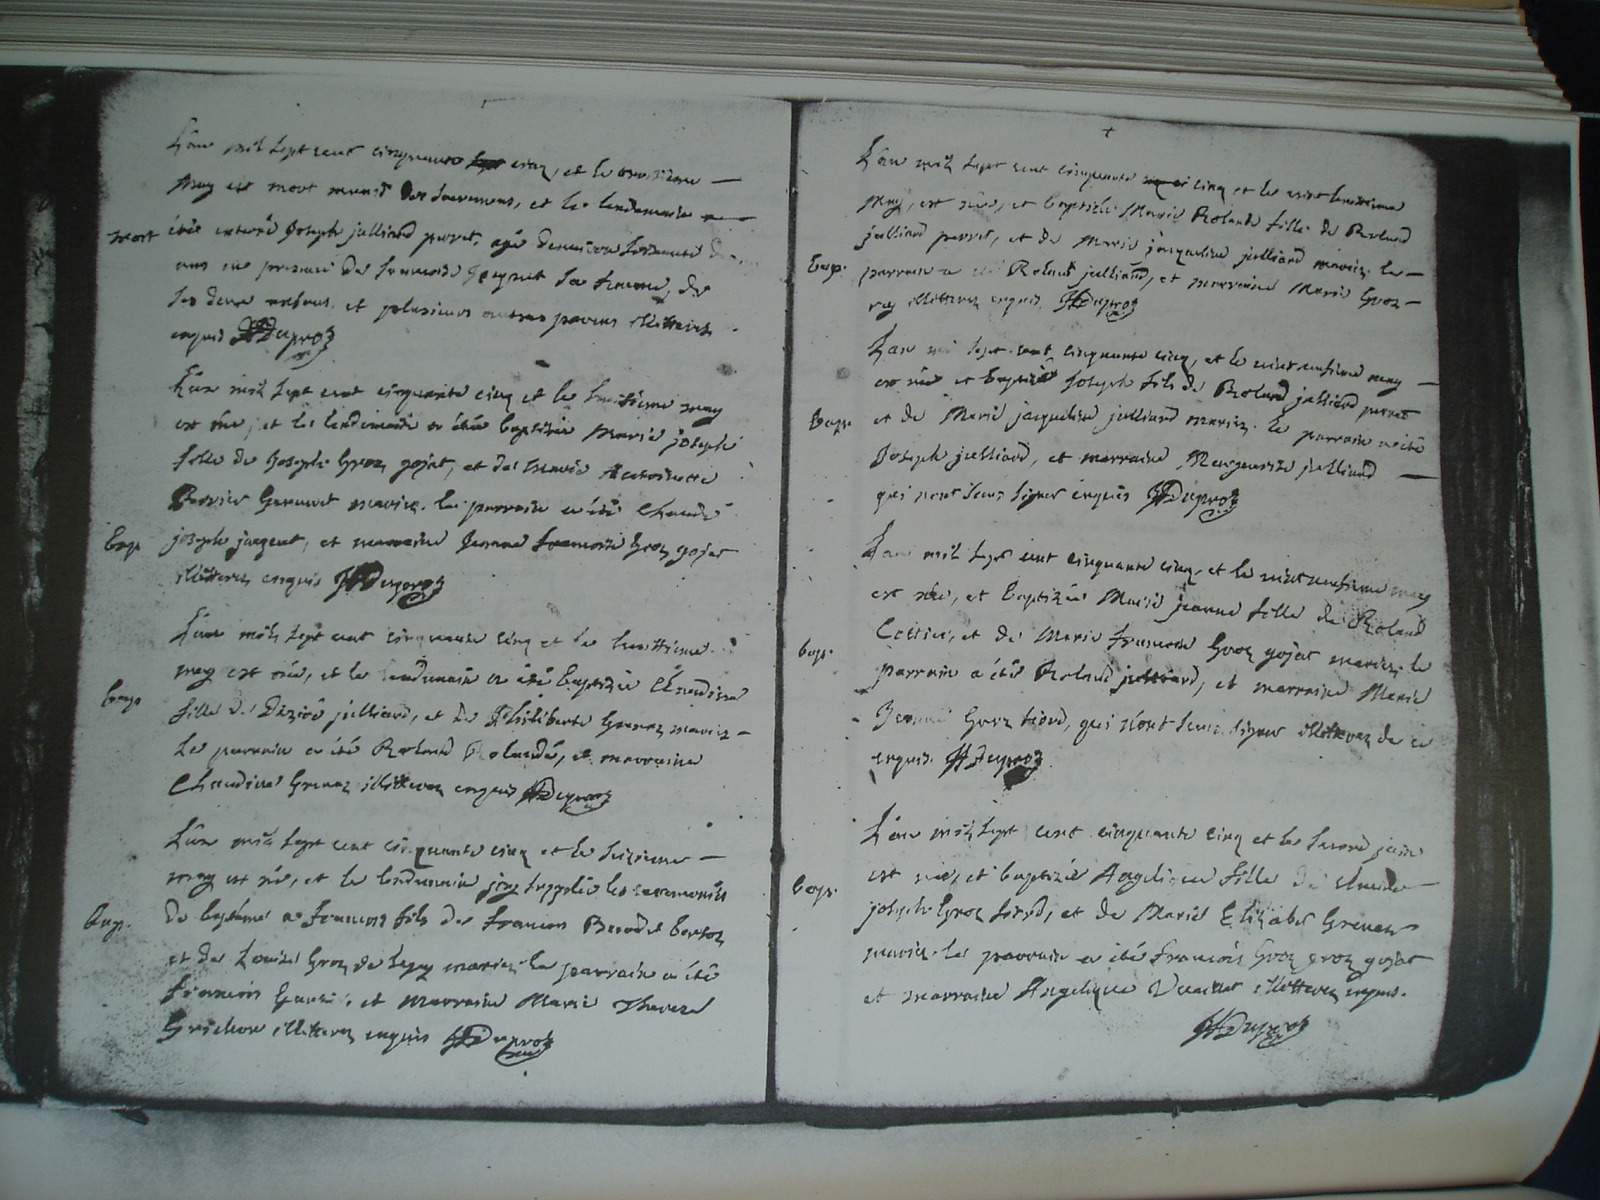 L'an mil sept cent cinquante cinq, et le troisieme
may est mort muni des sacremens, et le lendemain
mort
été enterré Joseph julliard perret, agé denviron soixante
ans en presence de francoise sa femme, de
ses deux et plusieurs autres parens illitterez
enquis Duproz
L'an mil sept cent cinquante cinq et le huitieme may
est née, et le lendemain a été baptizée Marie joseph
fille de Joseph Groz gojat, et de Marie Antoinette
mariez. le parrain a été Claude
bap.
joseph jargent, et marraine Jeanne francoise Groz gojat
illitterez enquis Duproz
L'an mil sept cent cinquante cinq et le huittieme
may est née, et le lendemain a été baptizée Claudine
bap.
fille de Diziré julliard, et de Philiberte Grenez mariez
Le parrain a été Roland Rolandé, et marraine
Claudine Grenez illitterez enquis Duproz
L'an mil sept cent cinquante cinq et le seizieme
may est né, et le lendemain jay supplée les ceremonies
bap.
de baptême a francois fils de francois
et de Louise Groz de mariez le parrain a été
francois et marraine Marie Therese
illitterez enquis Duproz
L'an mil sept cent cinquante cinq et le
may, est née, et baptizée Marie Rolande fille de Roland
julliard perret, et de Marie jacqueline julliard mariez. le
bap.
parrain a été Roland julliard, et marraine Marie Groz
illitterez enquis. Duproz
L'an mil sept cent cinquante cinq, et le may
est né et baptizé Joseph fils de Roland julliard perret
bap.
et de Marie jacqueline julliard mariez. le parrain a été
Joseph julliard, et marraine Marguerite julliard
qui n'ont sceu signer enquis Duproz
L'an mil sept cent cinquante cinq, et le may
est née, et baptizée Marie jeanne fille de Roland
bap.
et de Marie francoise Groz gojat mariez. le
parrain a été Roland julliard, et marraine Marie
Groz qui n'ont sceu signer illitterez de ce
enquis. Duproz
L'an mil sept cent cinquante cinq et le second juin
est née, et baptizée Angelique fille de Claude
bap.
joseph Groz et de Marie Elizabet Grenez
mariez. le parrain a été francois Groz gojat
et marraine Angelique illitterez enquis.
Duproz